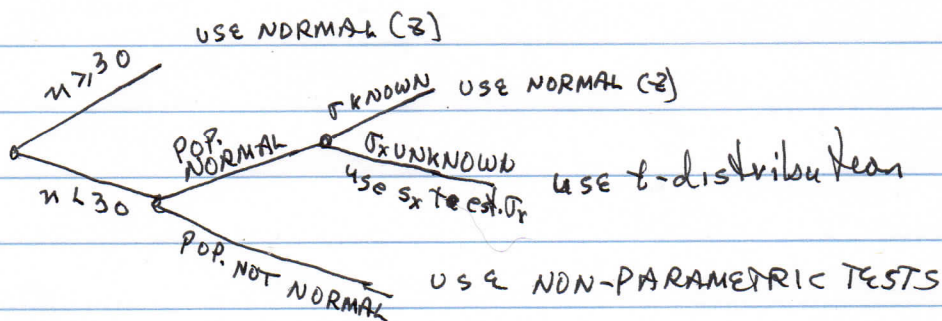 USE NORMAL (Z)
n ≥ 30
σ KNOWN
USE NORMAL (Z)
POP. NORMAL
σx UNKNOWN
use sx to est. σx
use t-distribution
n < 30
POP. NOT NORMAL
USE NON-PARAMETRIC TESTS